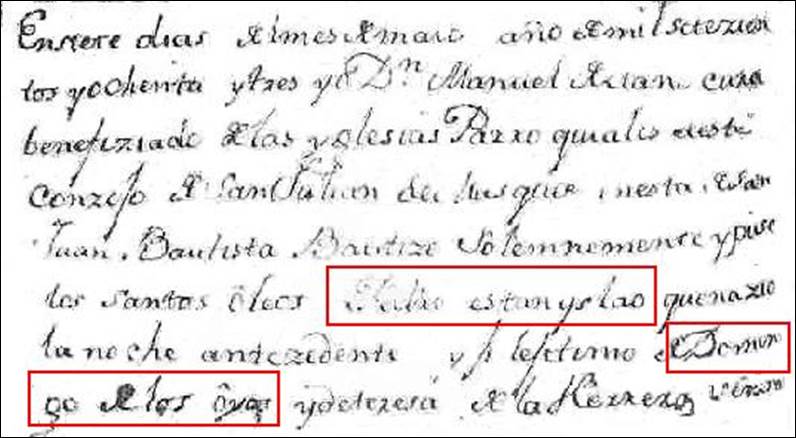 En siete dias del mes de maio año de mil setezien
tos y ochenta y tres yo Dn Manuel cura
benefiziado de las yglesias Parro quiales deste
Conzejo de San Julian de y nesta de San
Juan Bautista Bautize solemnemente y puse
los santos óleos estanyslao que nazio
la noche antezedente y lexitimo de Domin
go de los y de teresa de la Herrera